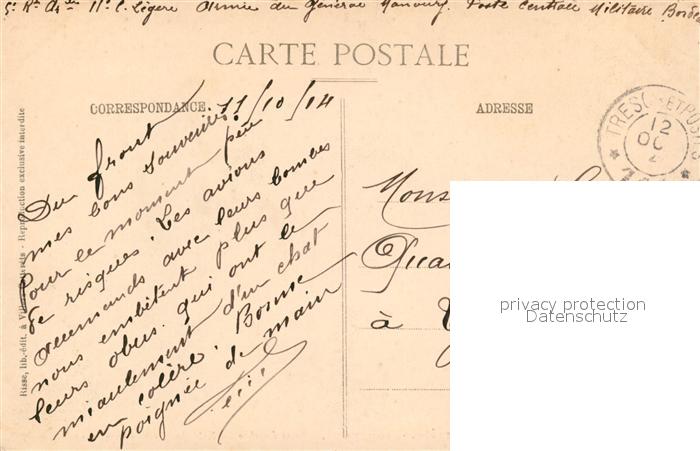 5e Rt Art 11e C. Légère Armée du Général Manoury. Poste Centrale Militaire Bordeaux
CARTE POSTALE
CORRESPONDANCE
ADRESSE
11/10/14
Du front
mes bons souvenirs.
Pour le moment peu
de risques. Les avions
allemands avec leurs bombes
nous embêtent plus que
leurs obus qui ont le
miaulement d'un chat
en colère. Bonne
poignée de main
TRESOR ET POSTES
12
OC
Mons
Quai
à
Reproduction exclusive interdite
Risse, lib.-édit. à
privacy protection
Datenschutz